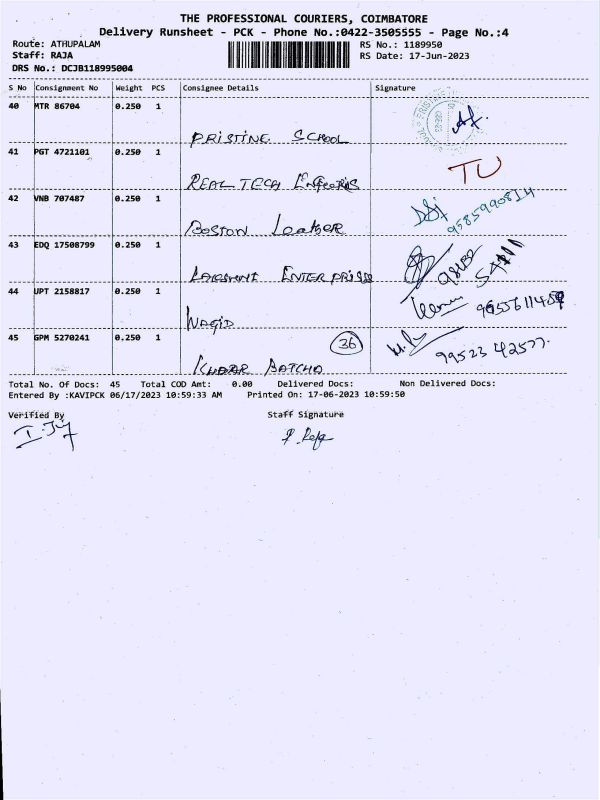 THE PROFESSIONAL COURIERS, COIMBATORE
Delivery Runsheet - PCK - Phone No.:0422-3505555 - Page No.:4
Route: ATHUPALAM RS No.: 1189950
Staff: RAJA RS Date: 17-Jun-2023
DRS No.: DCJB118995004
S No Consignment No Weight PCS Consignee Details Signature
40 MTR 86704 0.250 1
PRISTINE SCHOOL
41 PGT 4721101 0.250 1 TU
REAL TECH
42 VNB 707487 0.250 1 9585990814
BOSTON Leather
43 EDQ 17508799 0.250 1
LAKSHMI ENTERPRISE
44 UPT 2158817 0.250 1
WAGID
45 GPM 5270241 0.250 1 36 99523 42577
Total No. Of Docs: 45 Total COD Amt: 0.00 Delivered Docs: Non Delivered Docs:
Entered By :KAVIPCK 06/17/2023 10:59:33 AM Printed On: 17-06-2023 10:59:50
Verified By Staff Signature